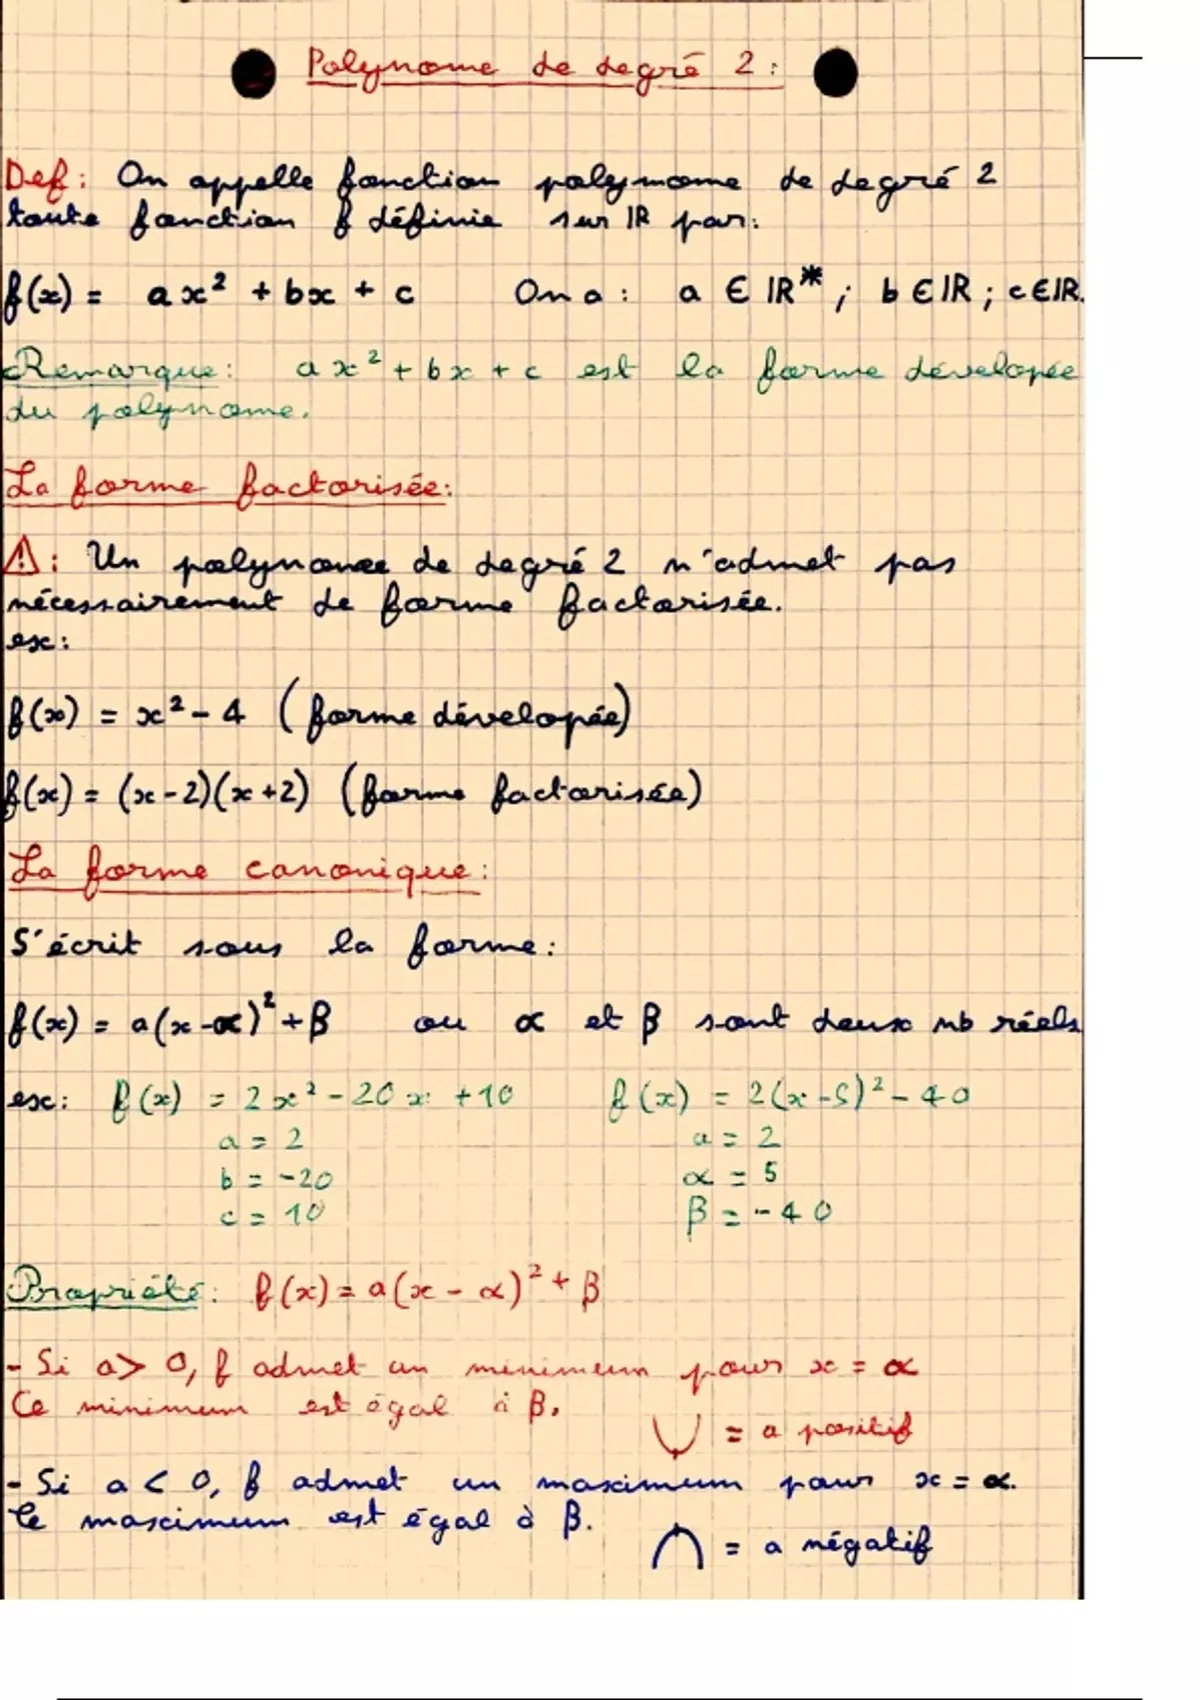 Polynome de degré 2 :
Def : On appelle fonction polynome de degré 2
toute fonction f définie sur IR par :
f(x) = ax² + bx + c On a : a ∈ IR* ; b ∈ IR ; c ∈ IR.
Remarque : ax² + bx + c est la forme dévelopée
du polynome.
La forme factorisée :
⚠ : Un polynome de degré 2 n'admet pas
nécessairement de forme factorisée.
ex :
f(x) = x² - 4 (forme dévelopée)
f(x) = (x-2)(x+2) (forme factorisée)
La forme canonique :
S'écrit sous la forme :
f(x) = a(x-α)² + β ou α et β sont deux nb réels
ex : f(x) = 2x² - 20x + 10 f(x) = 2(x-5)² - 40
a = 2 a = 2
b = -20 α = 5
c = 10 β = -40
Propriété : f(x) = a(x - α)² + β
- Si a > 0, f admet un minimum pour x = α
Ce minimum est égal à β.
= a positif
- Si a < 0, f admet un maximum pour x = α.
Ce maximum est égal à β.
= a négatif